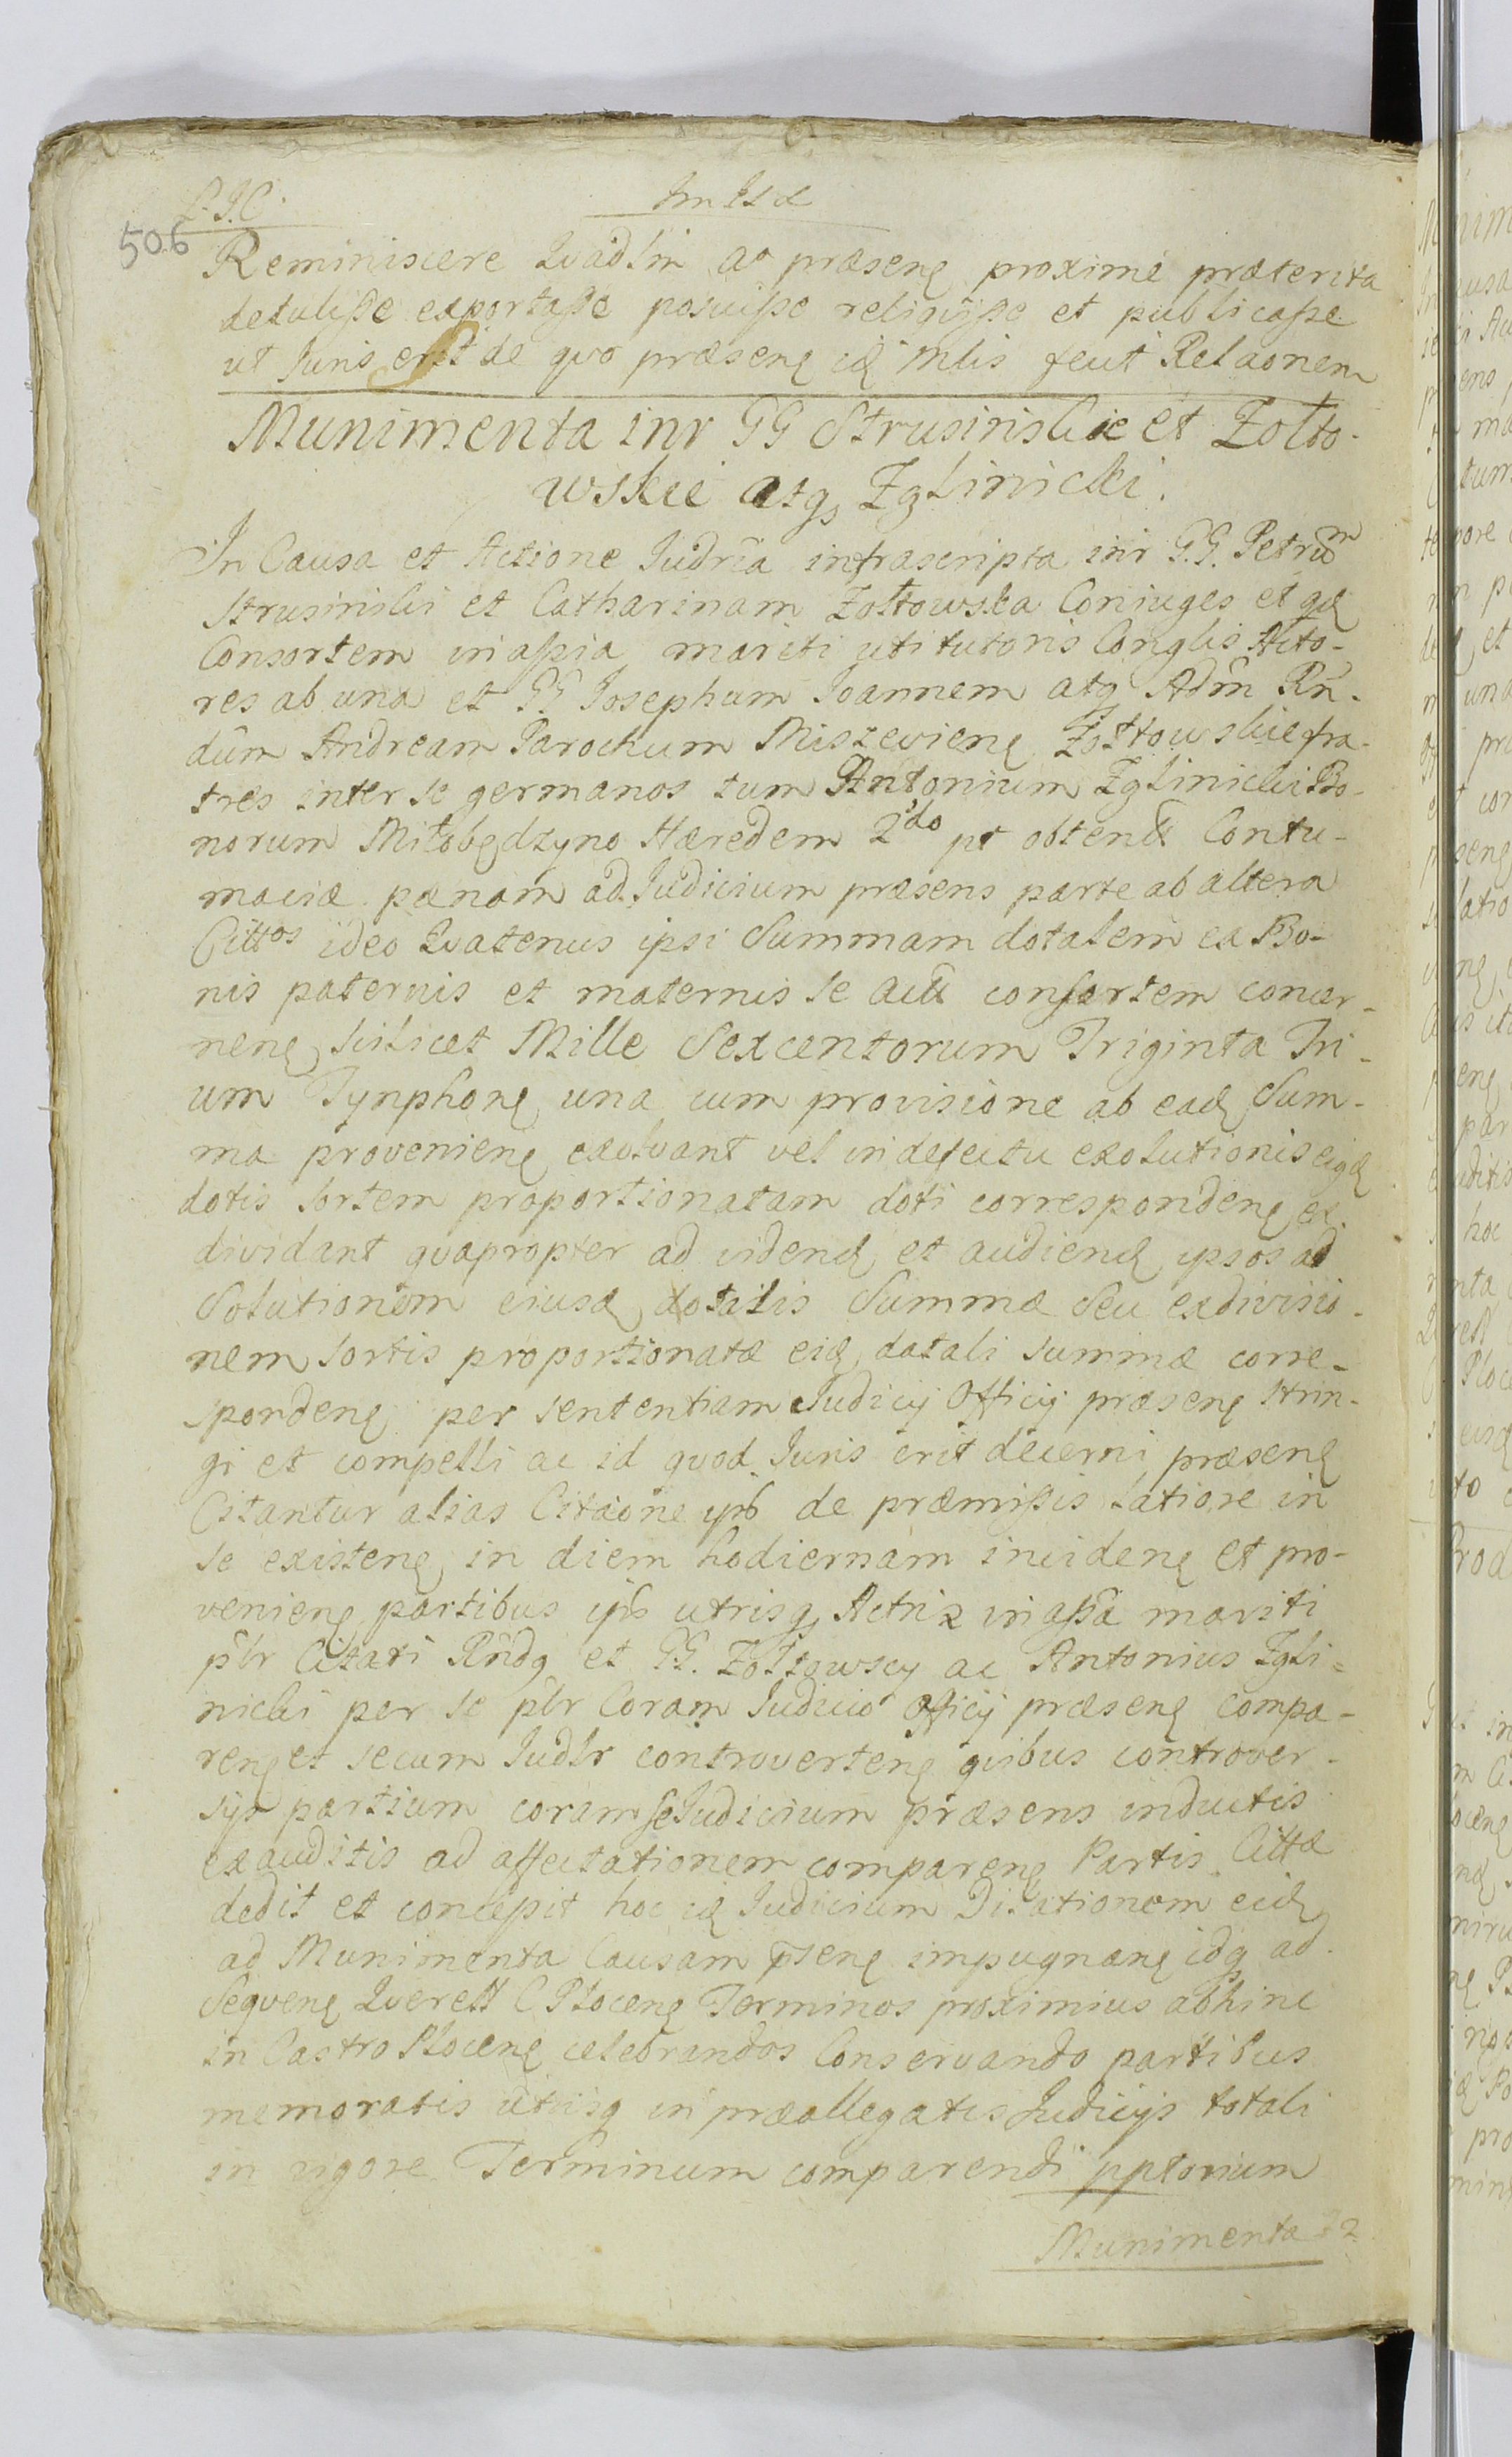 506
Reminiscere Qvadlin ao præsenę proxime præterita
detulisse exportasse posuisse reliqvisse et publicasse
ut Juris erit de qvo præsenę idę Mlis fecit Relaonem
Munimenta inr GG Strusinskie et Żołto-
wskie atqs Zglinicki.
In Causa et Actione Judria infrascripta inr G.G. Petrum
Strusinski et Catharinam Żołtowska Coniuges et qdę
Consortem in assia mariti uti tutoris Conglis Acto-
res ab una et GG Josephum Joannem atq Adm Rn-
dum Andream Parochum Miszevienę Żołtowskie fra-
tres inter se germanos tum Antonium Zglinicki Bo-
norum Miłobędzyno Hæredem 2do pt obtendę Contu-
maciæ pænam ad Judicium præsens parte ab altera
Cittos ideo Qvatenus ipsi Summam dotalem ex Bo-
nis paternis et maternis se consortem concer-
nenę scilicet Mille Sexcentorum Triginta Tri-
um Tynphonę una cum provisione ab eadę Sum-
ma provenienę exolvant vel in defectu exolutionis eigdę
dotis sortem proportionatam doti correspondenę ex
dividant qvapropter ad videndę et audiendę ipsos ad
Solutionem eiusdę dotalis Summæ Seu exdivisio-
nem sortis proportionatæ eidę dotali summæ corre-
spondenę per sententiam Judicij Officij præsenę strin-
gi et compelli ac id qvod Juris erit decerni præsenę
Citantur alias Citaõne ipsõ de præmissis latiore in
se existenę in diem hodiernam incidenę et pro-
venienę partibus ipis utrisq Actrix in assa mariti
plr Citati Rndq et GG. Żołtowscy ac Antonius Zgli-
nicki per se plr Coram Judicio Officij præsenę compa-
renę et secum Judlr controvertenę qibus controver-
sijs partium coram se Judicium præsens inductis
exauditis ad affectationem comparenę Partis Cittæ
dedit et concessit hoc idę Judicium Dilationem eidę
ad Munimenta Causam psenę impugnanę idq ad
Seqvenę Qverell C Plocenę Terminos proximius abhinc
in Castro Plocenę celebrandos Conservando partibus
memoratis utrisq in præallegatis Judicijs totali
in vigore Terminum comparendi pptorium
Munimenta